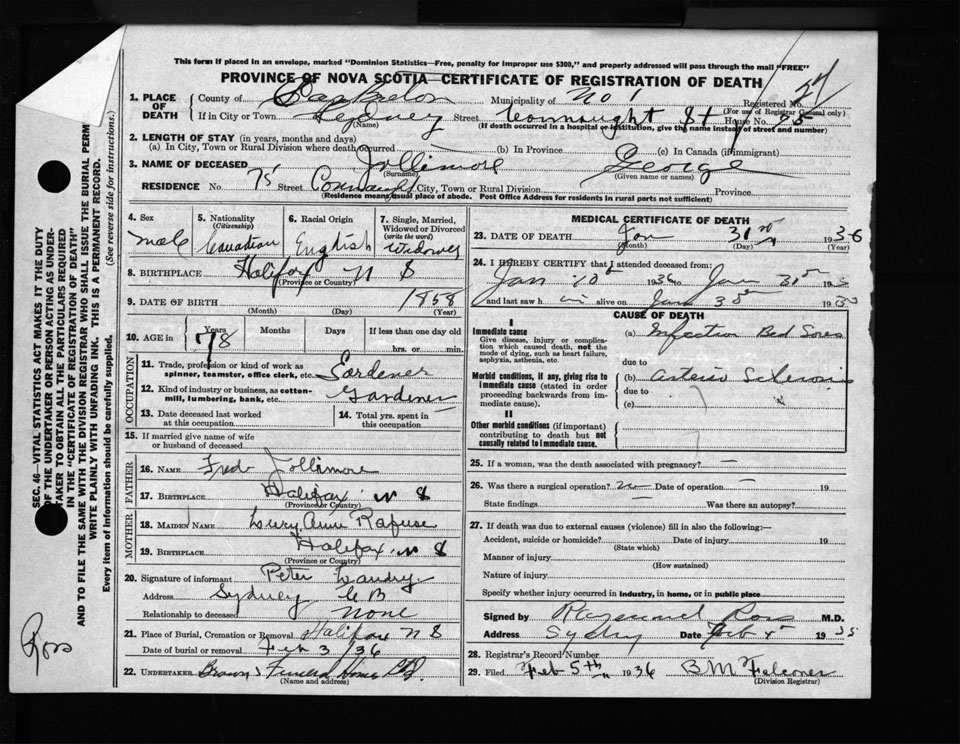 This form if placed in an envelope, marked "Dominion Statistics—Free, penalty for improper use $300," and properly addressed will pass through the mail "FREE"
PROVINCE OF NOVA SCOTIA—CERTIFICATE OF REGISTRATION OF DEATH
27
1. PLACE OF DEATH County of Cape Breton Municipality of No 1 Registered No. (For use of Registrar General only)
If in City or Town Sydney (Name) Street Connaught St House No.
(If death occurred in a hospital or institution, give the name instead of street and number)
2. LENGTH OF STAY (in years, months and days)
(a) In City, Town or Rural Division where death occurred (b) In Province (c) In Canada (if immigrant)
3. NAME OF DECEASED Jollimore (Surname) George (Given name or names)
RESIDENCE No 75 Street Connaught City, Town or Rural Division Province
(Residence means usual place of abode. Post Office Address for residents in rural parts not sufficient)
4. Sex male
5. Nationality (Citizenship) Canadian
6. Racial Origin English
7. Single, Married, Widowed or Divorced (write the word) Widower
8. BIRTHPLACE Halifax N S (Province or Country)
9. DATE OF BIRTH (Month) (Day) 1858 (Year)
10. AGE in Years 78 Months Days If less than one day old hrs. or min.
OCCUPATION
11. Trade, profession or kind of work as spinner, teamster, office clerk, etc. Gardener
12. Kind of industry or business, as cotton-mill, lumbering, bank, etc. Gardener
13. Date deceased last worked at this occupation
14. Total yrs. spent in this occupation
15. If married give name of wife or husband of deceased
FATHER
16. NAME Fred Jollimore
17. BIRTHPLACE Halifax N S (Province or Country)
MOTHER
18. MAIDEN NAME Lucy Anne Rafuse
19. BIRTHPLACE Halifax N S (Province or Country)
20. Signature of informant Peter Landry
Address Sydney C B
Relationship to deceased none
21. Place of Burial, Cremation or Removal Halifax N S
Date of burial or removal Feb 3/36
22. UNDERTAKER Browns Funeral Home Ltd. (Name and address)
MEDICAL CERTIFICATE OF DEATH
23. DATE OF DEATH Jan (Month) 31 (Day) 1936 (Year)
24. I HEREBY CERTIFY that I attended deceased from:
Jan 10 1936 to Jan 31 19
and last saw h im alive on Jan 19
CAUSE OF DEATH
I
Immediate cause
Give disease, injury or complication which caused death, not the mode of dying, such as heart failure, asphyxia, asthenia, etc.
(a) Infection Bed Sores
due to
Morbid conditions, if any, giving rise to immediate cause (stated in order proceeding backwards from immediate cause).
(b) Arterio Sclerosis
due to
(c)
II
Other morbid conditions (if important) contributing to death but not causally related to immediate cause.
25. If a woman, was the death associated with pregnancy? —
26. Was there a surgical operation? no Date of operation — 19
State findings — Was there an autopsy?
27. If death was due to external causes (violence) fill in also the following:—
Accident, suicide or homicide? (State which) Date of injury 19
Manner of injury (How sustained)
Nature of injury
Specify whether injury occurred in industry, in home, or in public place
Signed by Raymund Ross M.D.
Address Sydney Date Feb 19
28. Registrar's Record Number
29. Filed Feb 5th 1936 B M Falconer (Division Registrar)
SEC. 46—VITAL STATISTICS ACT MAKES IT THE DUTY
OF THE UNDERTAKER OR PERSON ACTING AS UNDER-
TAKER TO OBTAIN ALL THE PARTICULARS REQUIRED
IN THE "CERTIFICATE OF REGISTRATION OF DEATH"
AND TO FILE THE SAME WITH THE DIVISION REGISTRAR WHO SHALL ISSUE THE BURIAL PERM
WRITE PLAINLY WITH UNFADING INK. THIS IS A PERMANENT RECORD.
Every item of information should be carefully supplied. (See reverse side for instructions.)
Ross